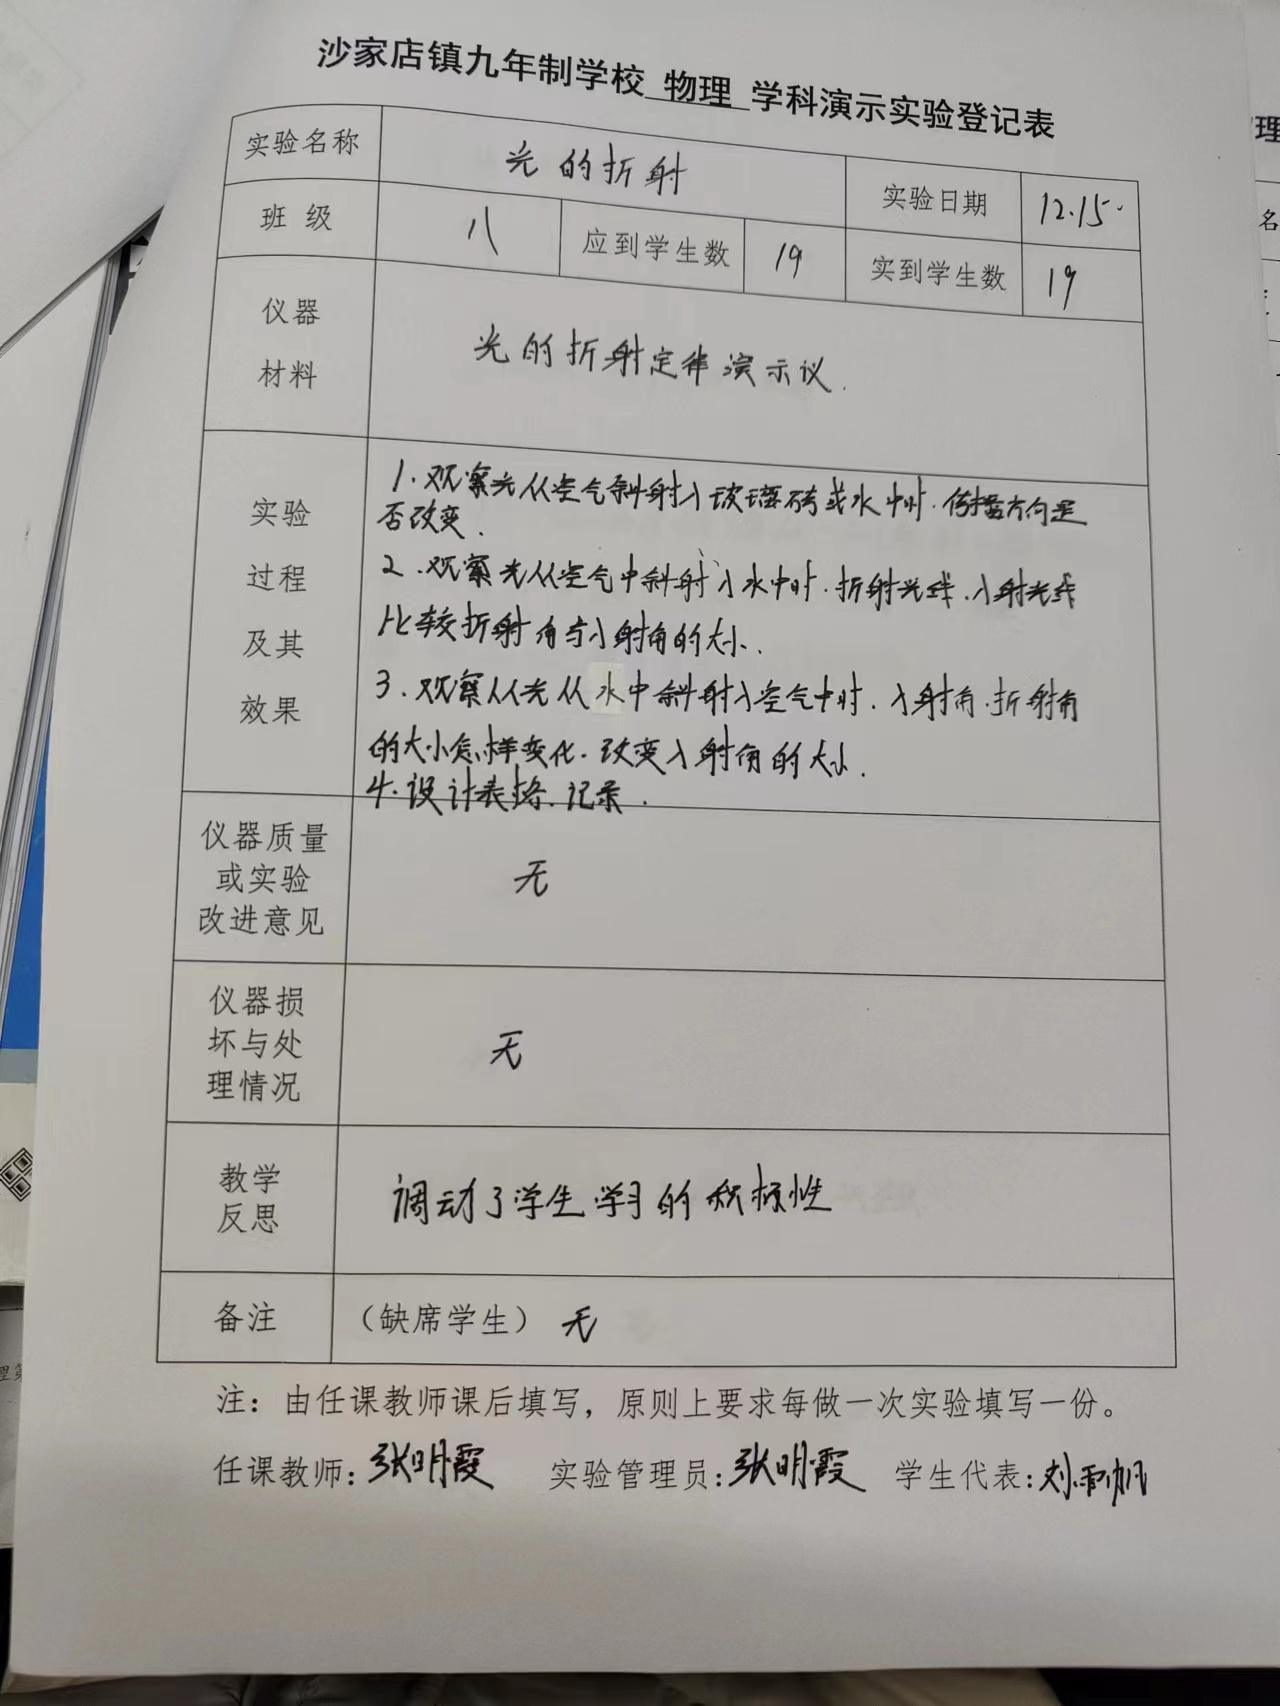 沙家店镇九年制学校 物理 学科演示实验登记表
实验名称 光的折射 实验日期 12.15.
班级 八 应到学生数 19 实到学生数 19
仪器
材料
光的折射定律演示议.
实验
过程
及其
效果
1.观察光从空气斜射入玻璃砖或水中时.传播方向是
否改变.
2.观察光从空气中斜射入水中时.折射光线.入射光线
比较折射角与入射角的大小.
3.观察从光从水中斜射入空气中时.入射角.折射角
的大小怎样变化.改变入射角的大小.
4.设计表格.记录.
仪器质量
或实验
改进意见
无
仪器损
坏与处
理情况
无
教学
反思
调动了学生学习的积极性
备注 （缺席学生） 无
注：由任课教师课后填写，原则上要求每做一次实验填写一份。
任课教师:张明霞 实验管理员:张明霞 学生代表:刘
理
名